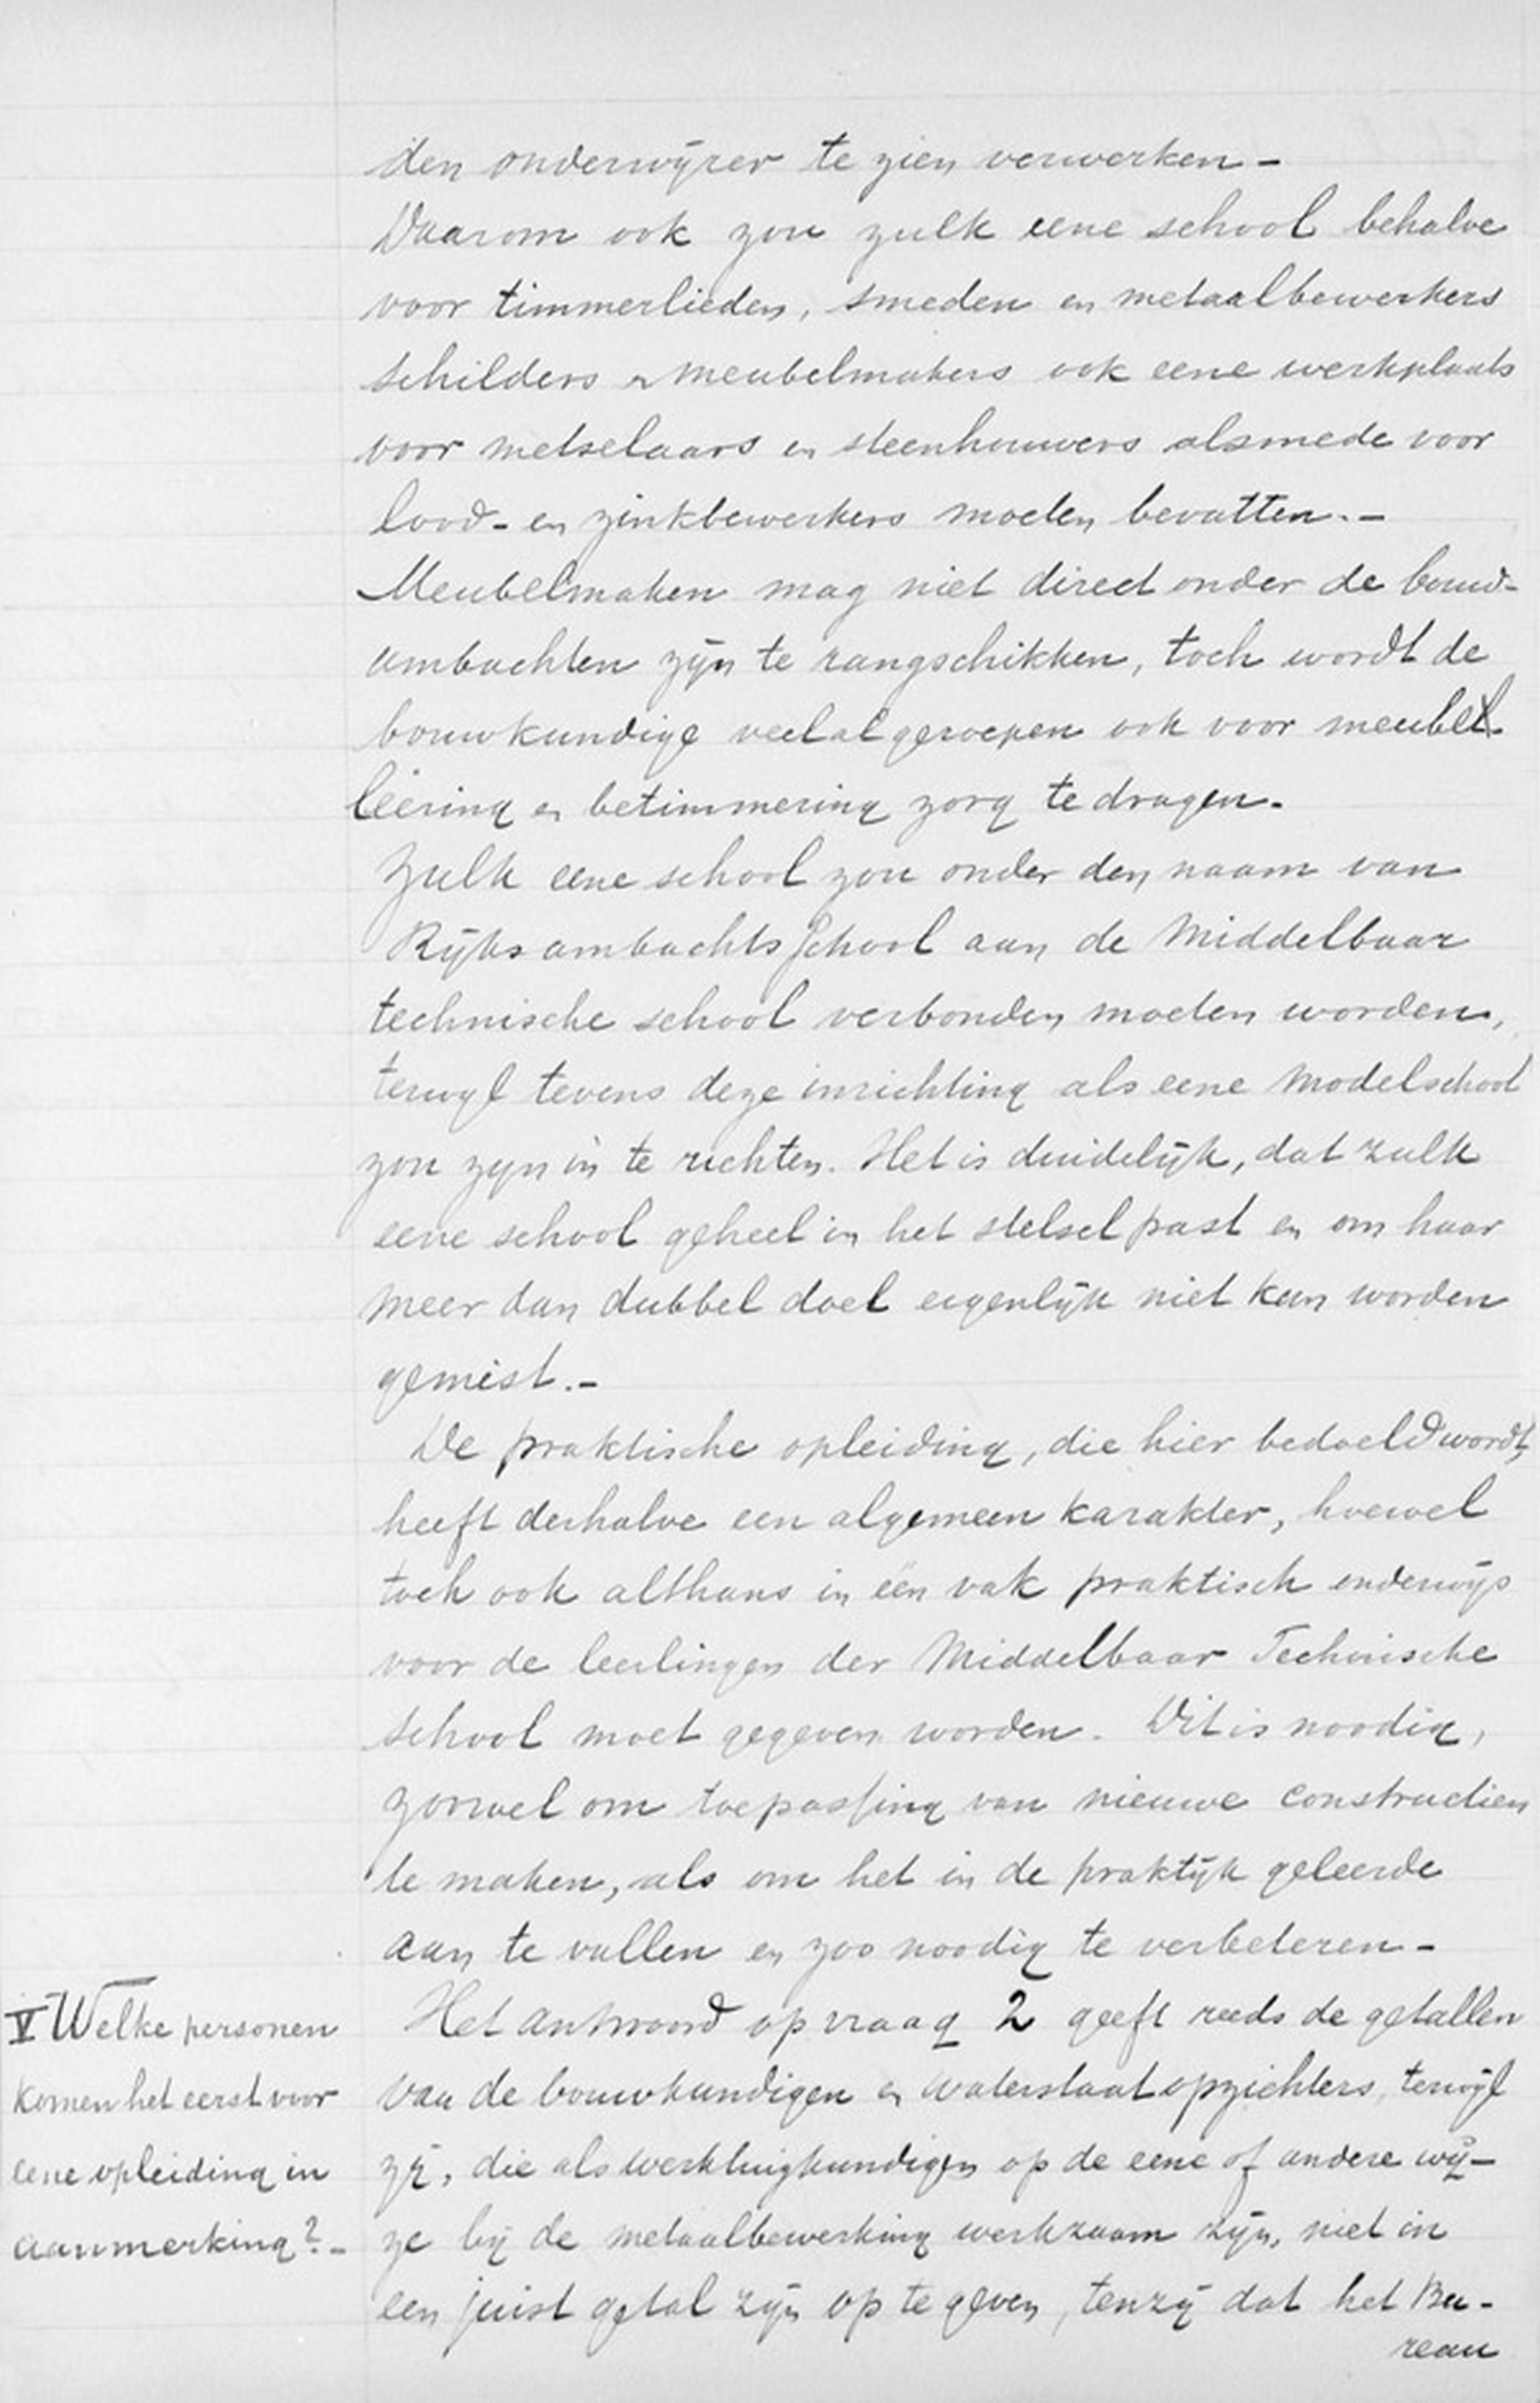 den onderwijzer te zien verwerken –
Daarom ook zou zulk eene school behalve
voor timmerlieden, smeden en metaalbewerkers
schilders en meubelmakers ook eene werkplaats
voor metselaars en steenhouwers alsmede voor
lood- en zinkbewerkers moeten bevatten. –
Meubelmaken mag niet direct onder de bouw-
ambachten zijn te rangschikken, toch wordt de
bouwkundige veelal geroepen ook voor meube-
leering en betimmering zorg te dragen.
Zulk eene school zou onder den naam van
Rijks ambachtsschool aan de Middelbaar
technische school verbonden moeten worden,
terwijl tevens deze inrichting als eene modelschool
zou zijn in te richten. Het is duidelijk, dat zulk
eene school geheel in het stelsel past en om haar
meer dan dubbel doel eigenlijk niet kan worden
gemist. –
De praktische opleiding, die hier bedoeld wordt,
heeft derhalve een algemeen karakter, hoewel
toch ook althans in één vak praktisch onderwijs
voor de leerlingen der Middelbaar Technische
school moet gegeven worden. Dit is noodig,
zoowel om toepassing van nieuwe constructien
te maken, als om het in de praktijk geleerde
aan te vullen en zoo noodig te verbeteren –
V Welke personen
komen het eerst voor
eene opleiding in
aanmerking? –
Het antwoord op vraag 2 geeft reeds de getallen
van de bouwkundigen en waterstaatopzichters, terwijl
zij, die als werktuigkundigen op de eene of andere wij-
ze bij de metaalbewerking werkzaam zijn, niet in
een juist getal zijn op te geven, tenzij dat het Bu-
reau